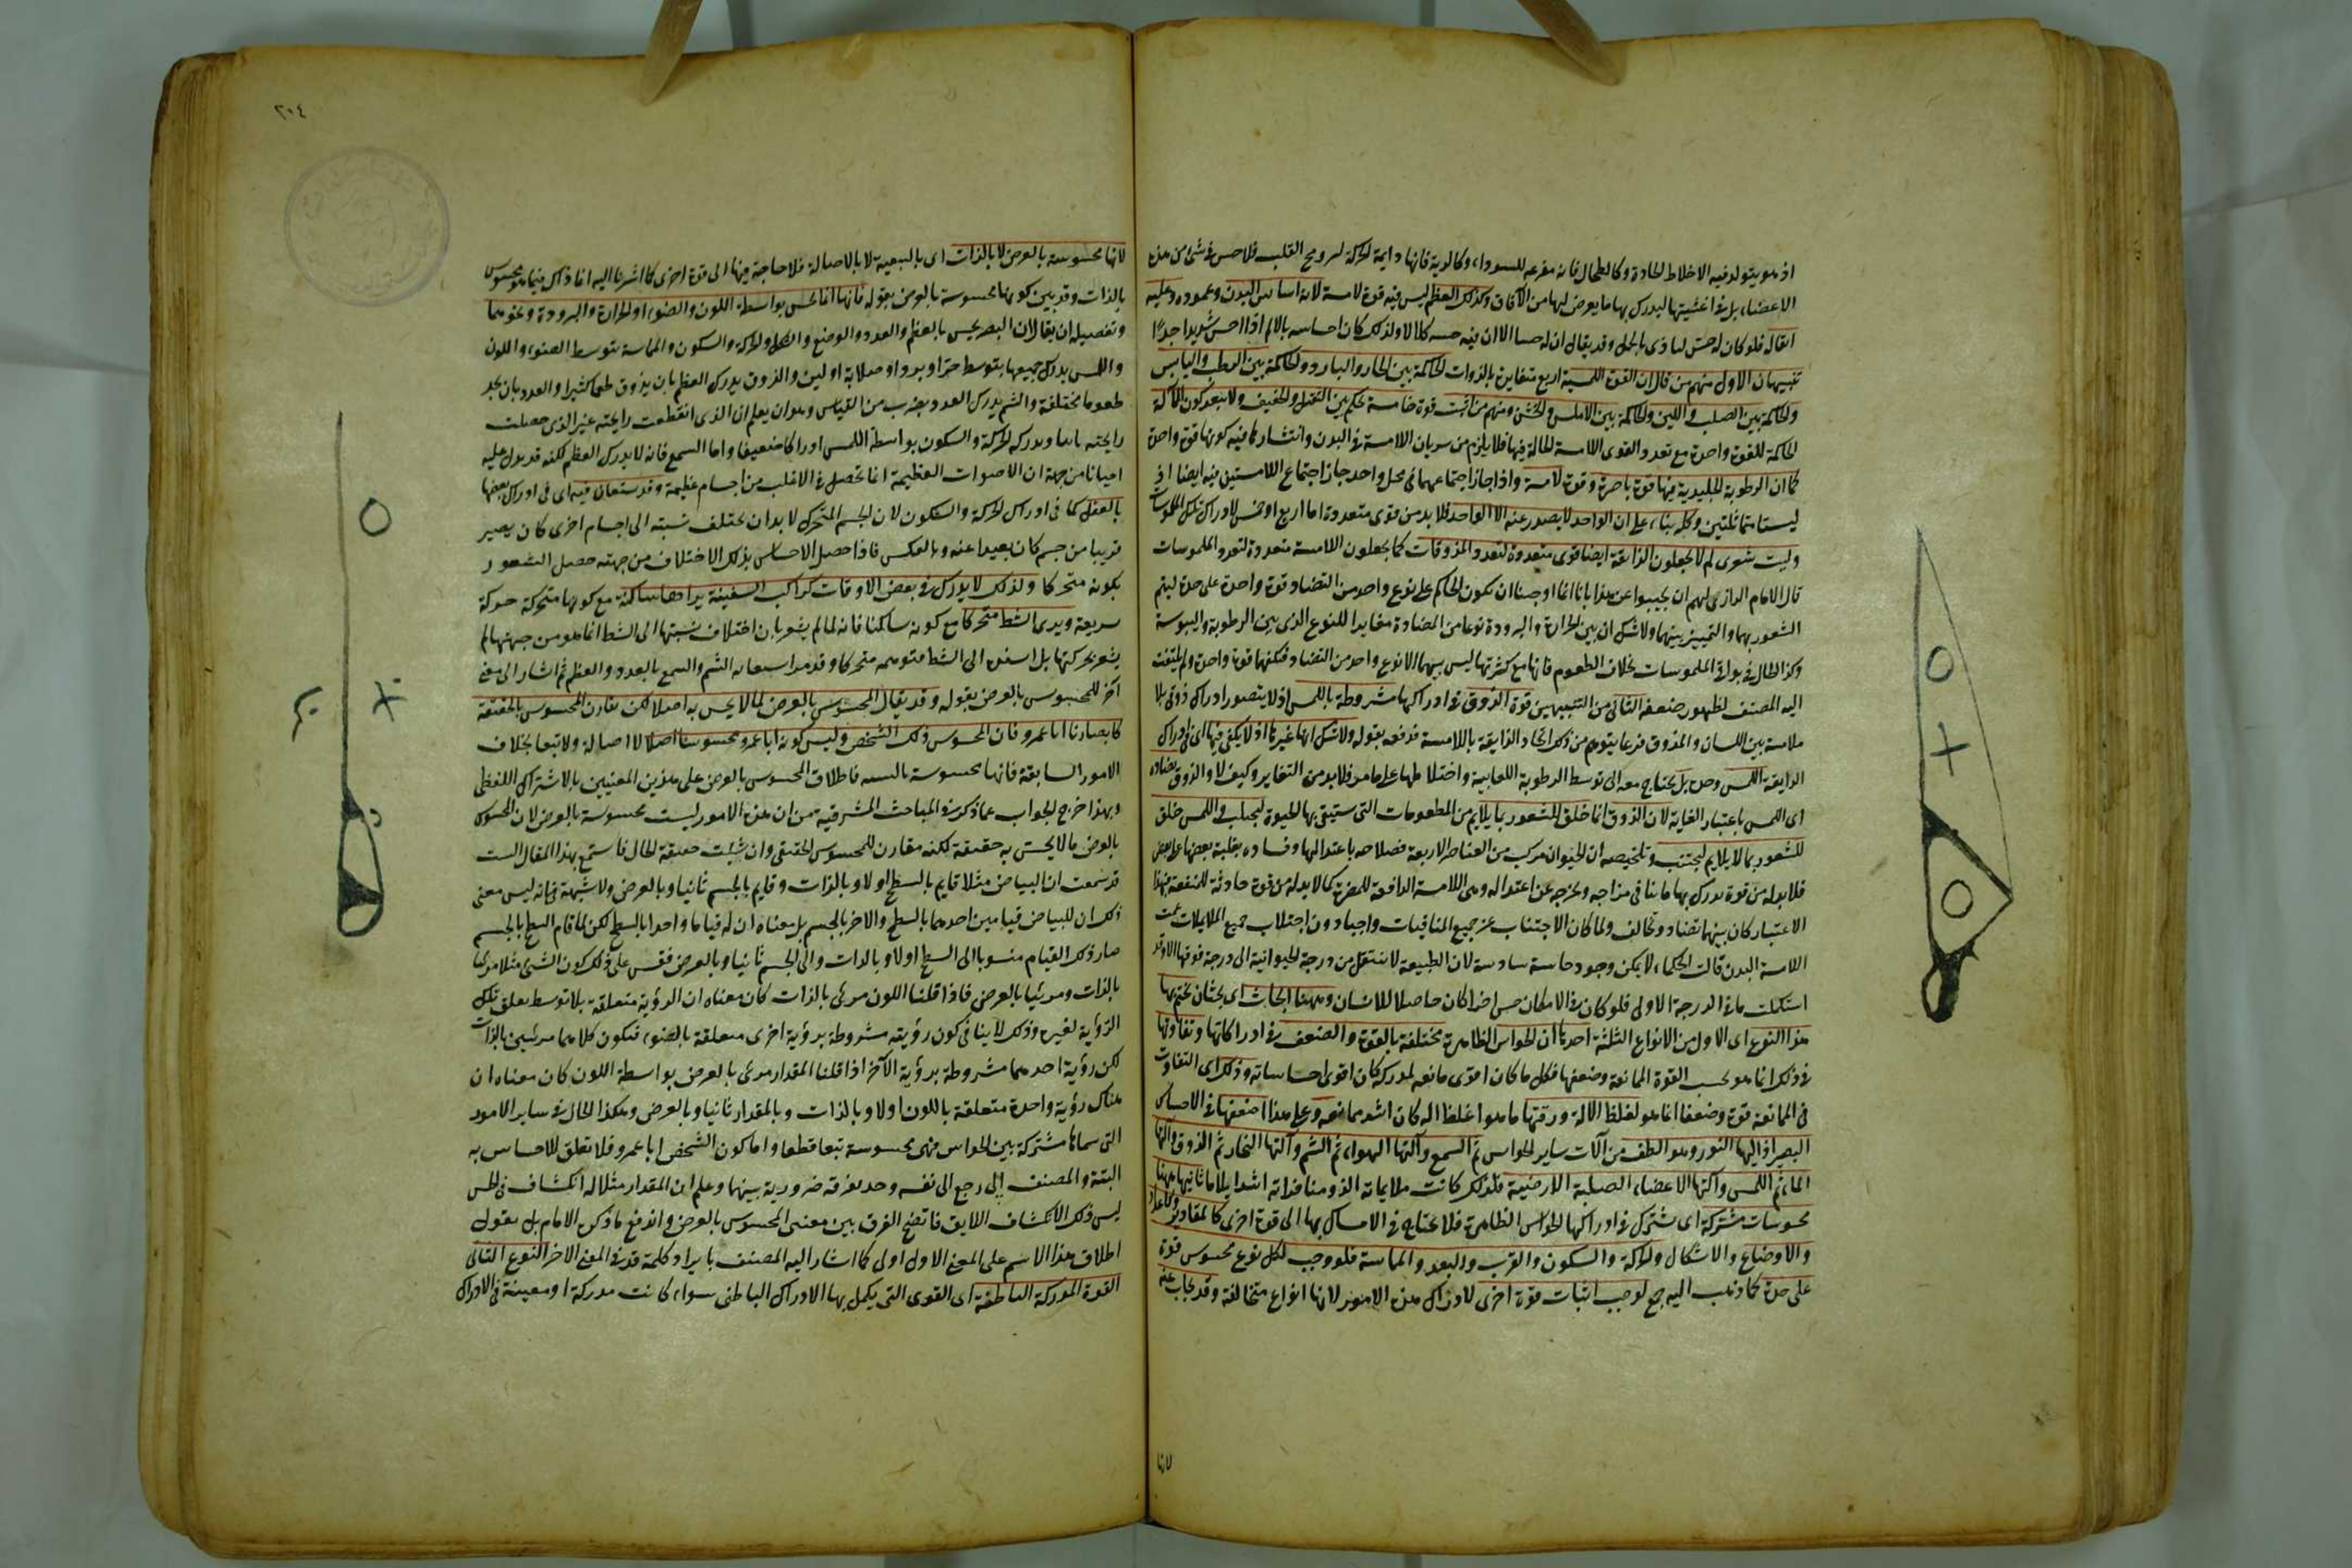 اذ هو يتولد فيه الاخلاط الحادة وكالطحال فانه مفرغه للسوداء وكالرية فانها دايمة الحركة لترويح القلب فلا حس فى شئ من هذه
الاعضاء بل فى اغشيتها ليدرك بها ما يعرض لها من الآفات وكذلك العظم ليس فيه قوة لامسة لانه اساس البدن وعموده وعليه
اثقاله فلو كان له حس لتاذى بالحمل وقد يقال ان له حسا الا ان فيه حسه كلالا ولذلك كان احساسه بالالم اذا احس شديدا جدا
تنبيهان الاول منهم من قال ان القوة اللمسية اربع متغايرة بالذوات الحاكمة بين الحار والبارد والحاكمة بين الرطب واليابس
والحاكمة بين الصلب واللين والحاكمة بين الاملس والخشن ومنهم من اثبت قوة خامسة تحكم بين الثقيل والخفيف ولا يبعد كون الآلة
الحاكمة للقوة واحدة مع تعدد القوى اللامسة الحالة فيها فلا يلزم من سريان اللامسة فى البدن وانتشارها فيه كونها قوة واحدة
كما ان الرطوبة الجليدية فيها قوة باصرة وقوة لامسة واذا جاز اجتماعهما فى محل واحد جاز اجتماع اللامستين فيه ايضا اذ
ليستا متماثلتين وكله بناء على ان الواحد لا يصدر عنه الا الواحد فلا بد من قوى متعددة اما اربع او خمس لادراك تلك الملموسات
وليت شعرى لم لا يجعلون الذايقة ايضا قوى متعددة لتعدد المذوقات كما يجعلون اللامسة متعددة لتعدد الملموسات
قال الامام الرازى لهم ان يجيبوا عن هذا بانا انما اوجبنا ان يكون الحاكم على نوع واحد من التضاد قوة واحدة على حدة ليتم
الشعور بهما والتمييز بينهما ولا شك ان بين الحرارة والبرودة نوعا من المضادة مغايرا للنوع الذى بين الرطوبة واليبوسة
وكذا الحال فى بواقى الملموسات بخلاف الطعوم فانها مع كثرتها ليس بينهما الا نوع واحد من التضاد فكفتها قوة واحدة ولم يلتفت
اليه المصنف لظهور ضعفه الثانى من التنبيهين قوة الذوق فى ادراكها مشروطة باللمس اذ لا يتصور ادراك ذوقى بلا
ملامسة بين اللسان والمذوق فربما يتوهم من ذلك اتحاد الذايقة باللامسة فدفعه بقوله ولا شك انها غيرها اذ لا يكفى فيها اى فى ادراك
الذايقة اللمس وحده بل يحتاج معه الى توسط الرطوبة اللعابية واختلاطها على ما مر فلا بد من التغاير وكيف لا والذوق يضاده
اى اللمس باعتبار الغاية لان الذوق انما خلق للشعور بما يلايم من المطعومات التى ستبقى بها الحيوة ليجتلب واللمس خلق
للشعور بما لا يلايم ليجتنب وتلخيصه ان الحيوان مركب من العناصر الاربعة فصلاحه باعتدالها وفساده بغلبة بعضها على بعض
فلا بد له من قوة يدرك بها ما ينافى مزاجه ويخرجه عن اعتداله وهى اللامسة الدافعة للمضرة كما لا بد له من قوة جاذبة للمنفعة فبهذا
الاعتبار كان بينهما تضاد وتخالف ولما كان الاجتناب عن جميع المنافيات واجبا دون اجتلاب جميع الملايمات عمت
اللامسة البدن قالت الحكماء لا يمكن وجود حاسة سادسة لان الطبيعة لا تنتقل من درجة الحيوانية الى درجة فوقها الا وقد
استكملت ما فى الدرجة الاولى فلو كان فى الامكان حس اخر لكان حاصلا للانسان وههنا ابحاث اى بحثان نختم بها
هذا النوع اى الاول من الانواع الثلثة احدها ان الحواس الظاهرة مختلفة بالقوة والضعف فى ادراكاتها وتفاوتها
فى ذلك انما هو بحسب القوة الممانعة وضعفها فكل ما كان اقوى ممانعة لمدركه كان اقوى احساساته وذلك اى التفاوت
فى الممانعة قوة وضعفا انما هو لغلظ الآلة ورقتها فما هو اغلظ آلة كان اشد ممانعة وعلى هذا اضعفها فى الاحساس
البصر اذ آلتها النور وهو الطف من آلات ساير الحواس ثم السمع وآلتها الهواء ثم الشم وآلتها البخار ثم الذوق وآلتها
الماء ثم اللمس وآلتها الاعضاء الصلبة الارضية فلذلك كانت ملايماته الذ ومنافراته اشد ايلاما ثانيها ههنا
محسوسات مشتركة اى تشترك فى ادراكها الحواس الظاهرة فلا يحتاج فى الاحساس بها الى قوة اخرى كالمقادير والاعداد
والاوضاع والاشكال والحركة والسكون والقرب والبعد والمماسة فلو وجب لكل نوع محسوس قوة
على حدة كما ذهب اليه جمع لوجب اثبات قوة اخرى لادراك هذه الامور لانها انواع متخالفة وقد يجاب عنه
لانها
٢٠٤
لانها محسوسة بالعرض لا بالذات اى بالتبعية لا بالاصالة فلا حاجة فيها الى قوة اخرى كما اشرنا اليه انما ذاك فيما هو محسوس
بالذات وقد بين كونها محسوسة بالعرض بقوله فانها انما تحس بواسطة اللون والضوء او الحرارة والبرودة ونحوهما
وتفصيله ان يقال ان البصر يحس بالعظم والعدد والوضع والشكل والحركة والسكون والمماسة بتوسط الضوء واللون
واللمس يدرك جميعها بتوسط حر او برد او صلابة او لين والذوق يدرك العظم بان يذوق طعما كثيرا والعدد بان يجد
طعوما مختلفة والشم يدرك العدد بضرب من القياس وهو ان يعلم ان الذى انقطعت رايحته غير الذى حصلت
رايحته ثانيا ويدركه الحركة والسكون بواسطة اللمس ادراكا ضعيفا واما السمع فانه لا يدرك العظم لكنه قد يدل عليه
احيانا من جهة ان الاصوات العظيمة انما تحصل فى الاغلب من اجسام عظيمة وقد يستعان فيه اى فى ادراك بعضها
بالعقل كما فى ادراك الحركة والسكون لان الجسم المتحرك لا بد ان تختلف نسبته الى اجسام اخرى كان يصير
قريبا من جسم كان بعيدا عنه وبالعكس فاذا حصل الاحساس بذلك الاختلاف من جهته حصل الشعور
بكونه متحركا ولذلك لا يدرك فى بعض الاوقات كراكب السفينة يراها ساكنة مع كونها متحركة حركة
سريعة ويرى الشط متحركا مع كونه ساكنا فانه لما لم يشعر بان اختلاف نسبتها الى الشط انما هو من جهتها لم
يشعر بحركتها بل اسنده الى الشط فتوهمه متحركا وقد مر استعانة الشم والسمع بالعدد والعظم ثم اشار الى معنى
آخر للمحسوس بالعرض بقوله وقد يقال المحسوس بالعرض لما لا يحس به اصلا لكن يقارن المحسوس بالحقيقة
كابصارنا ابا عمرو فان المحسوس ذلك الشخص وليس كونه ابا عمرو محسوسا اصلا لا اصالة ولا تبعا بخلاف
الامور السابقة فانها محسوسة بالتبعية فاطلاق المحسوس بالعرض على هذين المعنيين بالاشتراك اللفظى
وبهذا خرج الجواب عما ذكره فى المباحث المشرقية من ان هذه الامور ليست محسوسة بالعرض لان المحسوس
بالعرض ما لا يحس به حقيقة لكنه مقارن للمحسوس الحقيقى وان شئت حقيقة الحال فاستمع لهذا المقال الست
قد سمعت ان البياض مثلا قايم بالسطح اولا وبالذات وقايم بالجسم ثانيا وبالعرض ولا شبهة فى انه ليس معنى
ذلك ان للبياض قيامين احدهما بالسطح والآخر بالجسم بل معناه ان له قياما واحدا بالسطح لكن لما قام السطح بالجسم
صار ذلك القيام منسوبا الى السطح اولا وبالذات والى الجسم ثانيا وبالعرض فقس على ذلك كون الشئ مثلا مرئيا
بالذات ومرئيا بالعرض فاذا قلنا اللون مرئى بالذات كان معناه ان الرؤية متعلقة به بلا توسط تعلق تلك
الرؤية لغيره وذلك لا ينافى كون رؤيته مشروطة برؤية اخرى متعلقة بالضوء فيكون كلاهما مرئيين بالذات
لكن رؤية احدهما مشروطة برؤية الآخر اذا قلنا المقدار مرئى بالعرض بواسطة اللون كان معناه ان
هناك رؤية واحدة متعلقة باللون اولا وبالذات وبالمقدار ثانيا وبالعرض وهكذا الحال فى ساير الامور
التى سماها مشتركة بين الحواس فهى محسوسة تبعا قطعا واما كون الشخص ابا عمرو فلا تعلق للاحساس به
البتة والمصنف اذا رجع الى نفسه وجد تفرقة ضرورية بينهما وعلم ان المقدار مثلا له انكشاف فى الحس
ليس ذلك الانكشاف اللايق فاتضح الفرق بين معنى المحسوس بالعرض واندفع ما ذكره الامام بل نقول
اطلاق هذا الاسم على المعنى الاول اولى كما اشار اليه المصنف بايراد كلمة قد فى المعنى الآخر النوع الثانى
القوة المدركة الباطنة اى القوى التى يكمل بها الادراك الباطنى سواء كانت مدركة او معينة فى الادراك